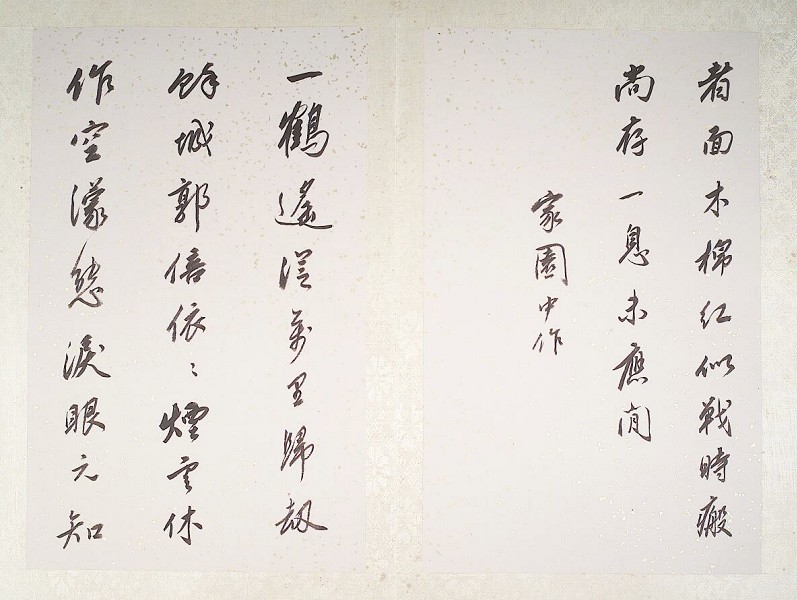 着面木棉红似戰時瘢
尚存一息未應閒
家園中作
一鶴遙從萬里歸劫
餘城郭倍依〻煙雲休
作空濛態淚眼元知